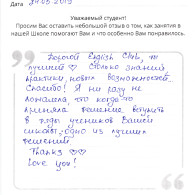 Дата 24.05.2019
Уважаемый студент!
Просим Вас оставить небольшой отзыв о том, как занятия в
нашей Школе помогают Вам и что особенно Вам понравилось.
English Club, ты
лучший ♡♡ Столько знаний
практики, новых возможностей
Спасибо! Я ни разу не
пожалела, что когда-то
приняла решение вступить
в ряды учеников Вашей
школы одно из лучших
решений.
Thanks ♡♡
Love you!